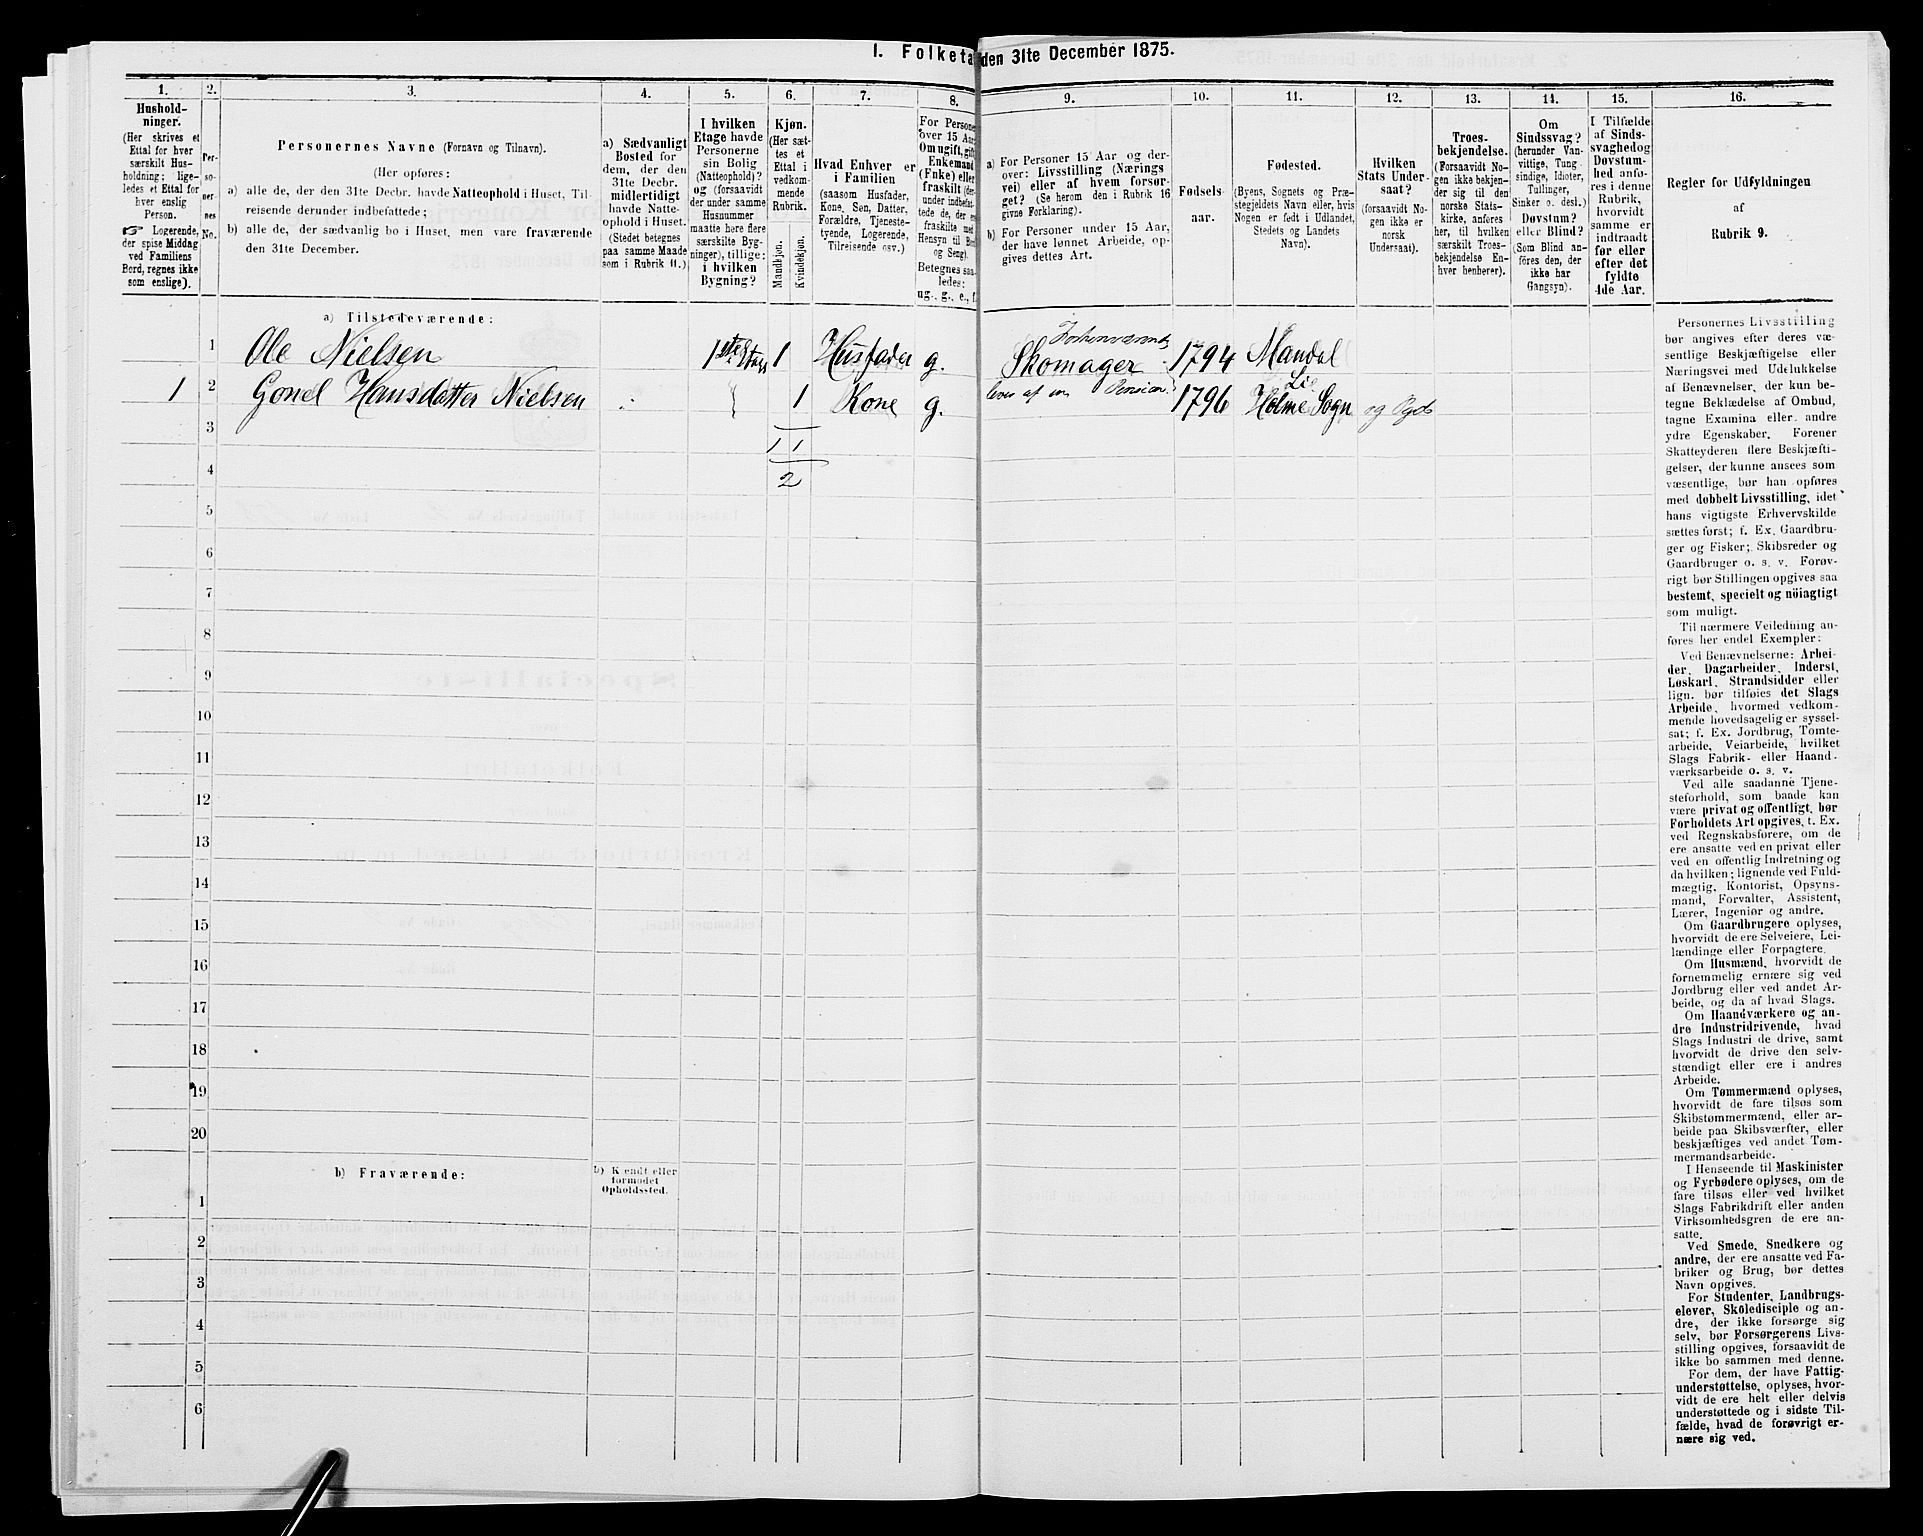 I. Folketa den 31te December 1875.
1. 2. 3. 4. 5. 6. 7. 8. 9. 10. 11. 12. 13. 14. 15. 16.
Hushold-
ninger.
(Her skrives et
Ettal for hver
særskilt Hus-
holdning; lige-
ledes et Ettal for
hver enslig
Person.
☞ Logerende,
der spise Middag
ved Familiens
Bord, regnes ikke
som enslige).
Per-
so-
ner-
nes
No.
Personernes Navne (Fornavn og Tilnavn).
(Her opføres:
a) alle de, der den 31te Decbr. havde Natteophold i Huset, Til-
reisende derunder indbefattede;
b) alle de, der sædvanlig bo i Huset, men vare fraværende
den 31te December.
a) Sædvanligt
Bosted for
dem, der den
31te Decbr.
midlertidigt
havde Natte-
ophold i Huset.
(Stedet betegnes
paa samme Maade
som i Rubrik 11.)
I hvilken
Etage havde
Personerne
sin Bolig
(Natteophold)?
og (forsaavidt
der under samme
Husnummer
maatte høre flere
særskilte Byg-
ninger), tillige:
i hvilken
Bygning?
Kjøn.
(Her sæt-
tes et
Ettal i
vedkom-
mende
Rubrik.
Mandkjøn.
Kvindekjøn.
Hvad Enhver er
i Familien
(saasom Husfader,
Kone, Søn, Datter,
Forældre, Tjeneste-
tyende, Logerende,
Tilreisende osv.)
For Persone
over 15 Aar
Om ugift, gift
Enkemand
(Enke) eller
fraskilt (der-
under indbefat-
tede de, der er
fraskilte med
Hensyn til Bo
og Seng).
Betegnes saa-
ledes:
ug., g., e., f.
a) For Personer 15 Aar og der-
over: Livsstilling (Nærings
vei) eller af hvem forsør-
get? (Se herom den i Rubrik 16
givne Forklaring).
b) For Personer under 15 Aar,
der have lønnet Arbeide, op-
gives dettes Art.
Fødsels-
aar.
Fødested.
(Byens, Sognets og Præ-
stegjeldets Navn eller, hvis
Nogen er født i Udlandet,
Stedets og Landets
Navn).
Hvilken
Stats Under-
saat?
(forsaavidt No-
gen ikke er
norsk
Undersaat).
Troes-
bekjendelse.
(Forsaavidt No-
gen ikke bekjen-
der sig til den
norske Stats-
kirke, anføres
her, til hvilken
særskilt Troes-
bekjendelse En-
hver henhører).
Om
Sindssvag?
(herunder Van-
vittige, Tung
sindige, Idioter,
Tullinger,
Sinker o. desl.)
Døvstum?
eller Blind?
(Som Blind an-
føres den, der
ikke har
Gangsyn).
I Tilfælde
af Sinds-
svaghed og
Døvstum-
hed anfø-
res i denne
Rubrik,
hvorvidt
samme er
indtraadt
før eller
efter det
fyldte
4de Aar.
Regler for Udfyldningen
af
Rubrik 9.
a) Tilstedeværende:
1 Ole Nielsen 1ste Etage 1 Husfader g. Skomager 1794 Mandal
1 2 Gonel Hansdatter Nielsen 1 Kone g. lever af en Pension. 1796 Holme Sogn og Pgd
3 1 1
4 2
5
6
7
8
9
10
11
12
13
14
15
16
17
18
19
20
b) Fraværende: b) Kjendt eller
formodet
Opholdssted.
1
2
3
4
5
6
Personernes Livsstilling
bør angives efter deres væ-
sentlige Beskjæftigelse eller
Næringsvei med Udelukkelse
af Benævnelser, der kun be-
tegne Beklædelse af Ombud,
tagne Examina eller andre
ydre Egenskaber. Forener
Skatteyderen flere Beskjæfti-
gelser, der kunne ansees som
væsentlige, bør han opføres
med dobbelt Livsstilling, idet
hans vigtigste Erhvervskilde
sættes først; f. Ex. Gaardbru-
ger og Fisker; Skibsreder og
Gaardbruger o. s. v. Forøv-
rigt bør Stillingen opgives saa
bestemt, specielt og nöiagtigt
som muligt.
Til nærmere Veiledning an-
føres her endel Exempler:
Ved Benævnelserne: Arbei-
der, Dagarbeider, Inderst,
Løskarl, Strandsidder eller
lign. bør tilføies det Slags
Arbeide, hvormed vedkom-
mende hovedsagelig er syssel-
sat; f. Ex. Jordbrug, Tomte-
arbeide, Veiarbeide, hvilket
Slags Fabrik- eller Haand-
værksarbeide o. s. v.
Ved alle saadanne Tjene-
steforhold, som baade kan
være privat og offentligt, bør
Forholdets Art opgives, t. Ex.
ved Regnskabsførere, om de
ere ansatte ved en privat eller
ved en offentlig Indretning og
da hvilken; lignende ved Fuld-
mægtig, Kontorist, Opsyns-
mand, Forvalter, Assistent,
Lærer, Ingeniør og andre.
Om Gaardbrugere oplyses,
hvorvidt de ere Selveiere, Lei-
lændinge eller Forpagtere.
Om Husmænd, hvorvidt de
fornemmelig ernære sig ved
Jordbrug eller ved andet Ar-
beide, og da af hvad Slags.
Om Haandværkere og an-
dre Industridrivende, hvad
Slags Industri de drive, samt
hvorvidt de drive den selv-
stændigt eller ere i andres
Arbeide.
Om Tømmermænd oplyses,
hvorvidt de fare tilsøs som
Skibstømmermænd, eller ar-
beide paa Skibsværfter, eller
beskjæftiges ved andet Tøm-
mermandsarbeide.
I Henseende til Maskinister
og Fyrbødere oplyses, om de
fare tilsøs eller ved hvilket
Slags Fabrikdrift eller anden
Virksomhedsgren de ere an-
satte.
Ved Smede, Snedkere og
andre, der ere ansatte ved Fa-
briker og Brug, bør dettes
Navn opgives.
For Studenter, Landbrugs-
elever, Skoledisciple og an-
dre, der ikke forsørge sig
selv, bør Forsørgerens Livs-
stilling opgives, forsaavidt de
ikke bo sammen med denne.
For dem, der have Fattig-
understøttelse, oplyses, hvor-
vidt de ere helt eller delvis
understøttede og i sidste Til-
fælde, hvad de forøvrigt er-
nære sig ved.